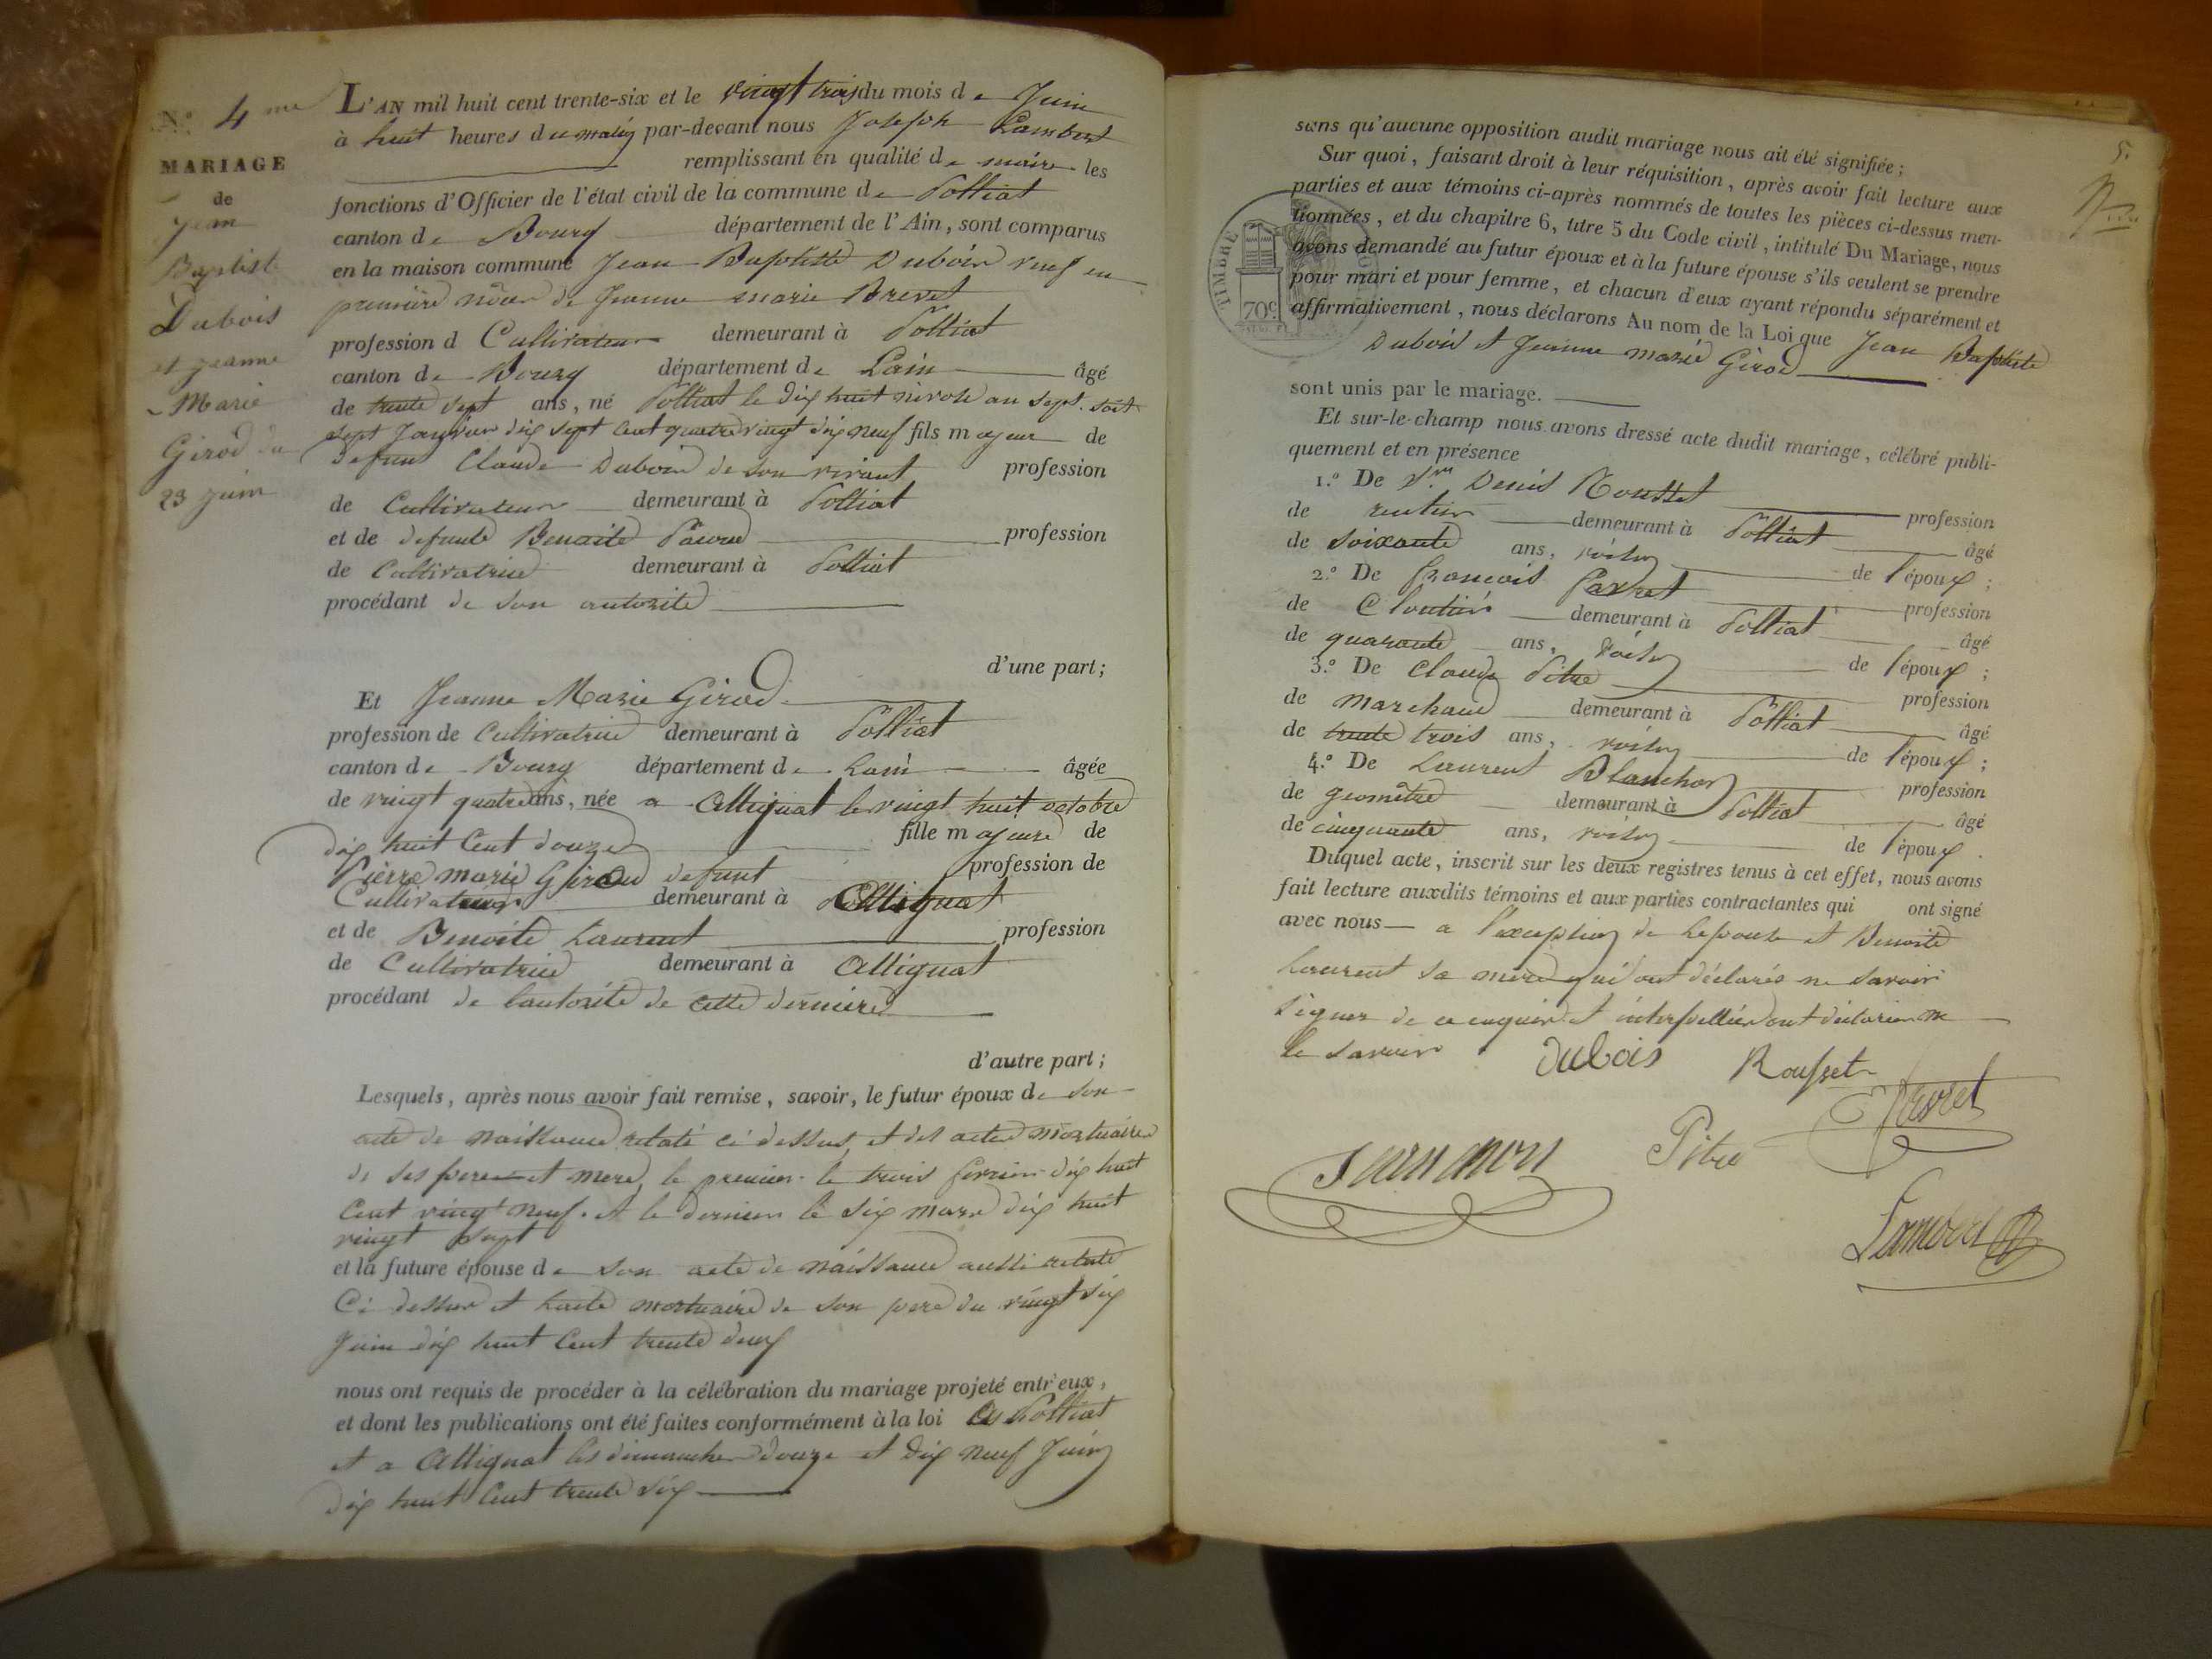 N.º 4 me
MARIAGE
de
Jean
Baptiste
Dubois
et jeanne
Marie
Girod du
23 juin
L'AN mil huit cent trente-six et le vingt trois du mois de Juin
à huit heures du matin par-devant nous Joseph Lambert
remplissant en qualité de maire les
fonctions d'Officier de l'état civil de la commune de Polliat
canton de Bourg département de l'Ain, sont comparus
en la maison commune Jean Baptiste Dubois veuf en
première noces de Jeanne marie Brevet
profession d Cultivateur demeurant à Polliat
canton de Bourg département de Lain âgé
de trente sept ans, né Polliat le dix huit nivose an sept. soit
sept Janvier dix sept cent quatre vingt dix neuf fils majeur de
defunt Claude Dubois de son vivant profession
de Cultivateur demeurant à Polliat
et de defunte Benoite profession
de Cultivatrice demeurant à Polliat
procédant de son autorité
d'une part;
Et Jeanne Marie Girod
profession de Cultivatrice demeurant à Polliat
canton de Bourg département de Lain âgée
de vingt quatre ans, née a Attignat le vingt huit octobre
dix huit Cent douze fille majeure de
Pierre marie Girod defunt profession de
Cultivateur demeurant à Attignat
et de Benoite Laurent profession
de Cultivatrice demeurant à Attignat
procédant de lautorité de cette dernière
d'autre part;
Lesquels, après nous avoir fait remise, savoir, le futur époux de son
acte de naissance relaté ci dessus et des actes mortuaires
de ses pere et mere, le premier le trois fevrier dix huit
Cent vingt neuf. et le dernier le six mars dix huit
vingt sept
et la future épouse de son acte de naissance aussi relaté
Ci dessus et lacte mortuaire de son pere du vingt six
Juin dix huit Cent trente deux
nous ont requis de procéder à la célébration du mariage projeté entr'eux,
et dont les publications ont été faites conformément à la loi a Polliat
et a Attignat les dimanches douze et dix neuf Juin
dix huit Cent trente six
5.
TIMBRE
70c
sans qu'aucune opposition audit mariage nous ait été signifiée;
Sur quoi, faisant droit à leur réquisition, après avoir fait lecture aux
parties et aux témoins ci-après nommés de toutes les pièces ci-dessus men-
tionnées, et du chapitre 6, titre 5 du Code civil, intitulé Du Mariage, nous
avons demandé au futur époux et à la future épouse s'ils veulent se prendre
pour mari et pour femme, et chacun d'eux ayant répondu séparément et
affirmativement, nous déclarons Au nom de la Loi que Jean Baptiste
Dubois et Jeanne marie Girod
sont unis par le mariage.
Et sur-le-champ nous avons dressé acte dudit mariage, célébré publi-
quement et en présence
1.º De Sr. Denis Rousset profession
de rentier demeurant à Polliat âgé
de soixante ans, voisin de l'époux;
2.º De francois favret profession
de Cloutier demeurant à Polliat âgé
de quarante ans, voisin de l'époux;
3.º De Claude Pitre profession
de Marchand demeurant à Polliat âgé
de trente trois ans, voisin de l'époux;
4.º De Laurent Blanchon profession
de geomêtre demeurant à Polliat âgé
de cinquante ans, voisin de l'époux.
Duquel acte, inscrit sur les deux registres tenus à cet effet, nous avons
fait lecture auxdits témoins et aux parties contractantes qui ont signé
avec nous a l'exception de Lepouse et Benoite
Laurent sa mere qui ont déclarés ne savoir
signer de ce enquis et interpelliés ont déclarer ne
le savoir
Dubois Rousset
favret
Pitre
Lambert